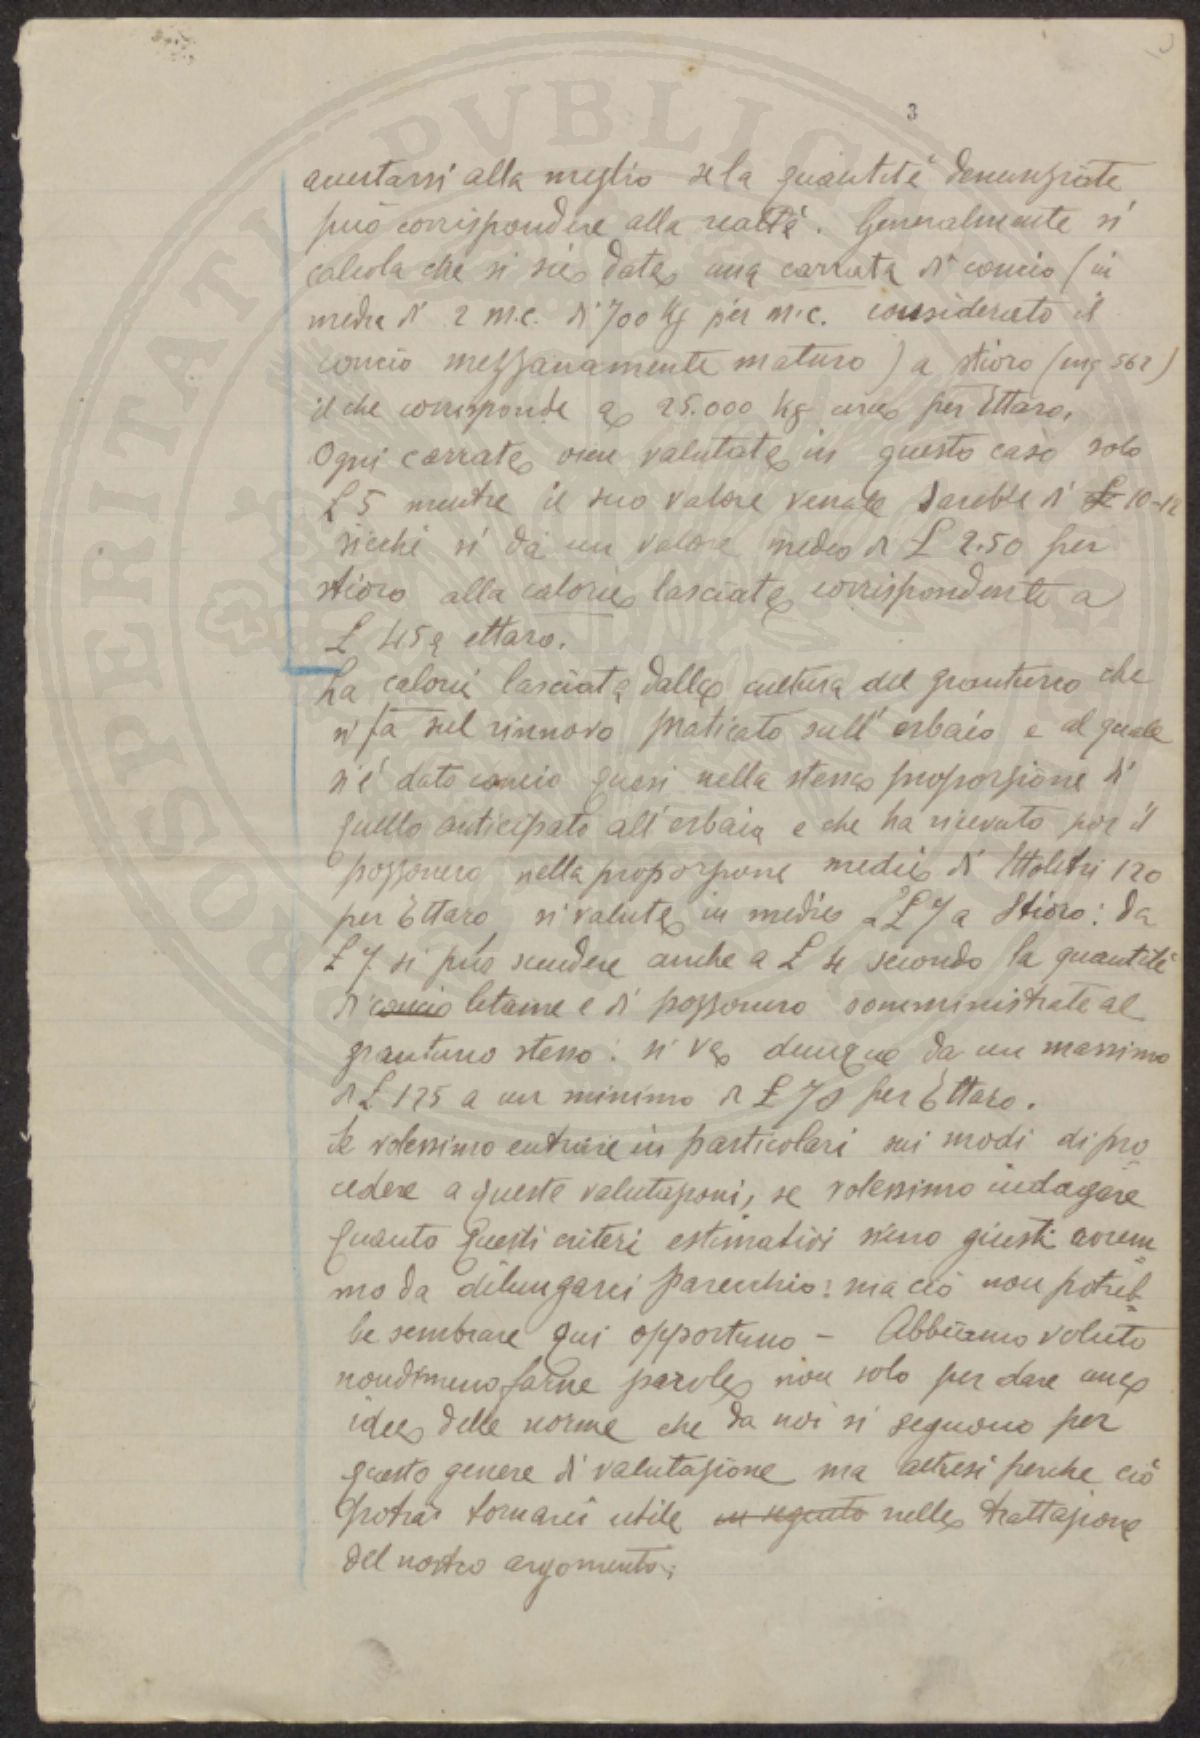 3
avertarsi alla meglio se la quantità denunziate
può corrispondere alla realtà. Generalmente si
calcola che si sia data una carrata di concio (in
media di 2 m.c. di 700 Kg per m.c. considerato il
concio mezzanamente maturo) a stioro (mq 562)
il che corrisponde a 25.000 Kg circa per Ettaro.
Ogni carrata vien valutata in questo caso solo
£ 5 mentre il suo valore venale sarebbe di £ 10-12
sicché si dà un valore medio di £ 2.50 per
stioro alla caloria lasciata corrispondente a
£ 45 a ettaro.
La caloria lasciata dalla cultura del granturco che
si fa sul rinnovo praticato sull'erbaio e al quale
si è dato concio quasi nella stessa proporzione di
quello anticipato all'erbaia e che ha ricevuto poi il
pozzonero nella proporzione media di Ettolitri 120
per Ettaro, si valuta in media a £ 7 a Stioro: da
£ 7 si può scendere anche a £ 4 secondo la quantità
di concio letame e di pozzonero somministrate al
granturco stesso: si va dunque da un massimo
di £ 125 a un minimo di £ 70 per Ettaro.
Se volessimo entrare in particolari sui modi di pro
cedere a queste valutazioni, se volessimo indagare
quanto questi criteri estimativi sieno giusti avrem
mo da dilungarci parecchio: ma ciò non potreb
be sembrare qui opportuno - Abbiamo voluto
nondimeno farne parola non solo per dare una
idea delle norme che da noi si seguono per
questo genere di valutazione ma altresì perche ciò
potrà tornarci utile in seguito nella trattazione
del nostro argomento.
PROSPERITATI PVBLICAE